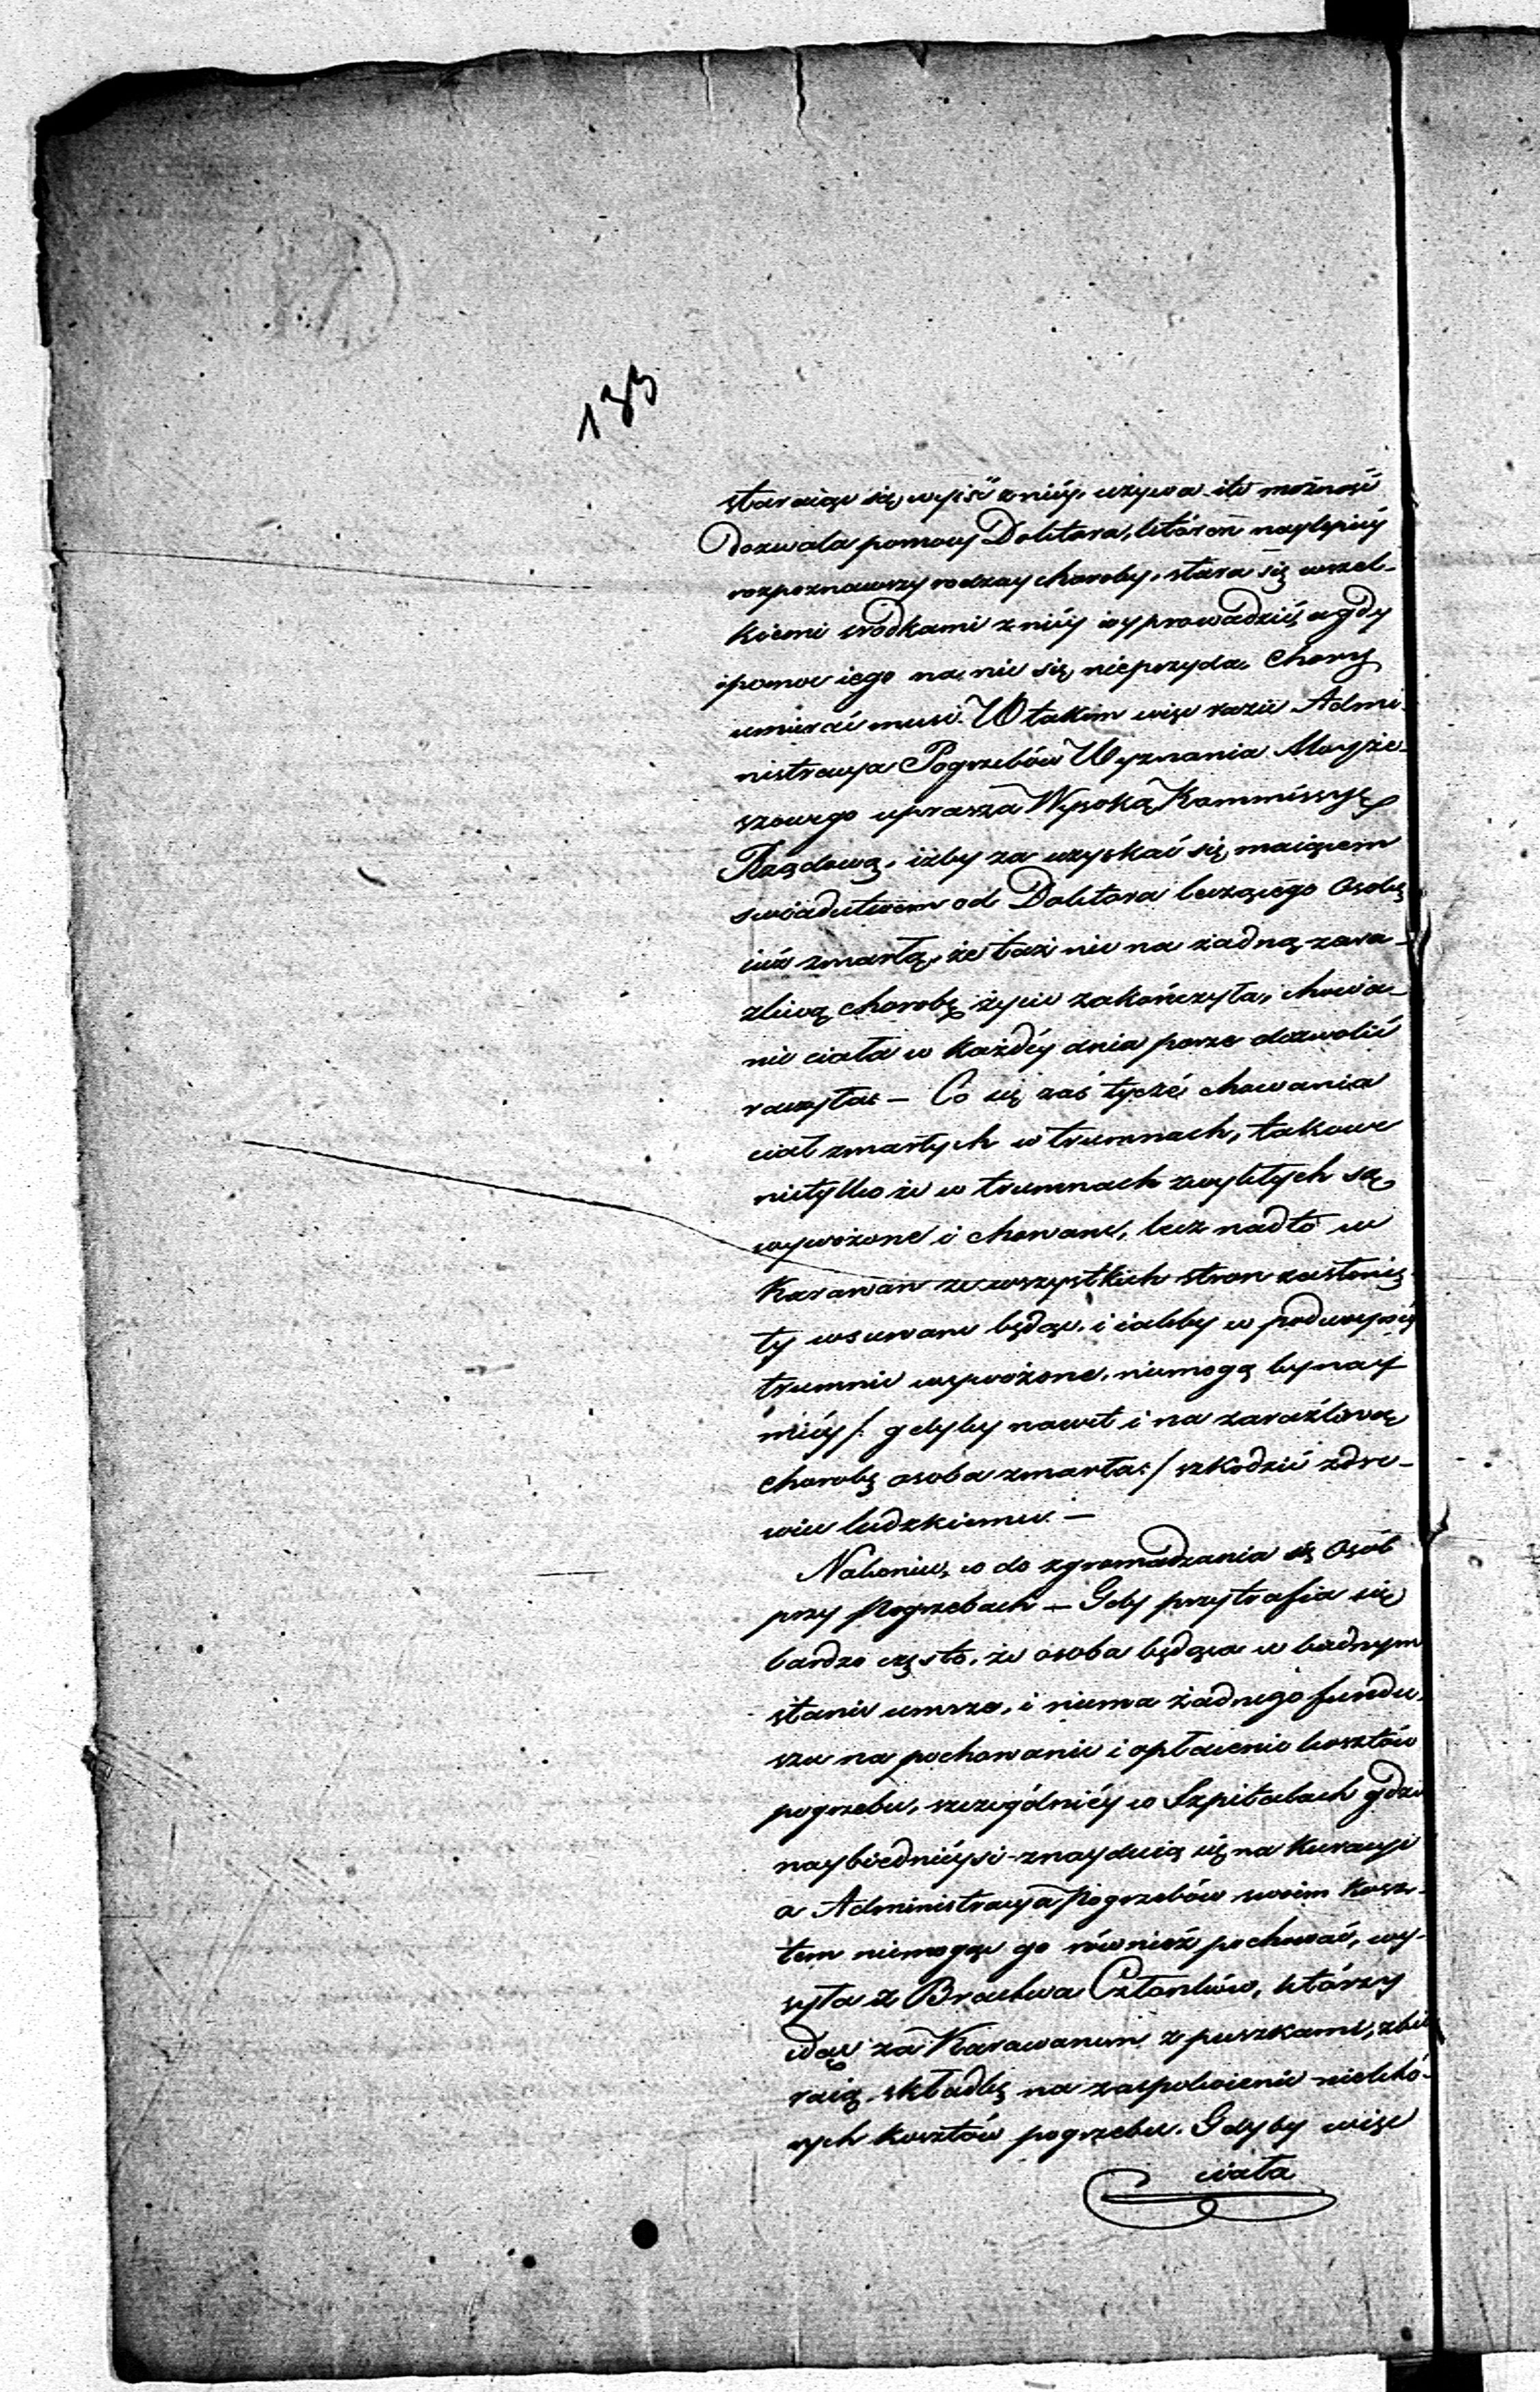 133
staraiąc się wyiść z niéy, używa ile możność
dozwala pomocy Doktora, któren naylepiéy
rozpoznawszy rodzay choroby, stara się wszel-
kiemi srodkami z niéy wyprowadzić, a gdy
i pomoc iego na nic się nieprzyda, Chory
umierać musi. W takim więc razie Admi-
nistracya Pogrzebów Wyznania Moyże-
szowego uprasza Wysoką Kommissyę
Rządową, iżby za uzyskać się maiącem
swiadectwem od Doktora leczącego Osobę
iuż zmarłą, że taż nie na żadną zara-
zliwą chorobę życie zakończyła, chowa-
nie ciała w każdéy dnia porze dozwolić
raczyła — Co się zaś tycze chowania
ciał zmarłych w trumnach, takowe
nietylko że w trumnach zwykłych są
wywożone i chowane, lecz nadto w
Karawan ze wszystkich stron zasłonię-
ty wsuwane będąc, i iakby w podwoynéy
trumnie wywożone, niemogą bynay-
miéy /: gdyby nawet i na zaraźliwą
chorobę osoba zmarła :/ szkodzić zdro-
wiu ludzkiemu. —
Nakoniec, co do zgromadzania się Osób
przy Pogrzebach — Gdy przytrafia się
bardzo często, że osoba będąca w biednym
stanie umrze, i niema żadnego fundu-
szu na pochowanie i opłacenie kosztów
pogrzebu, szczególniéy w Szpitalach gdzie
naybiednieysi znayduią się na kuracyi
a Administracya Pogrzebów swoim kosz-
tem niemogąc go również pochować, wy-
syła z Bractwa Członków, którzy
idąc za Karawanem z puszkami, zbie
raią składkę na zaspokoienie niektó-
rych kosztów pogrzebu. Gdyby więc
ciała